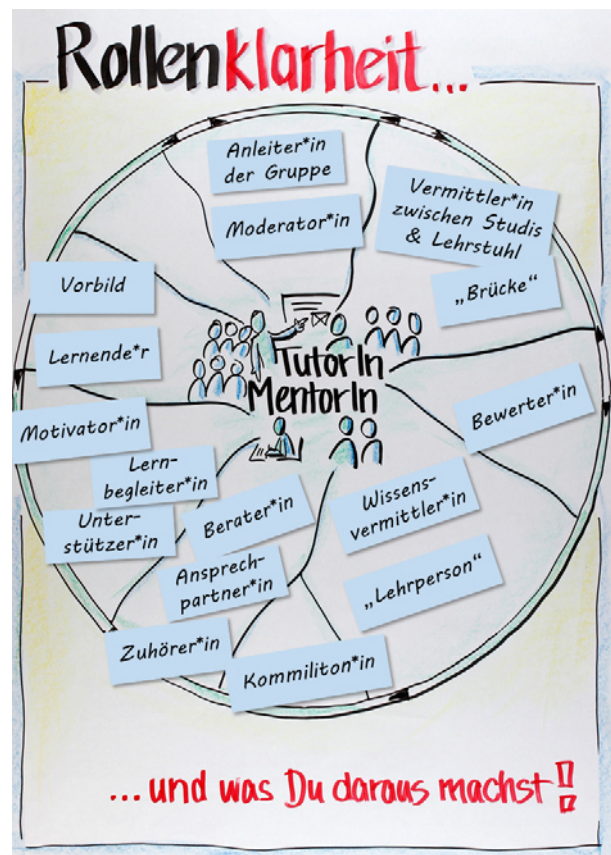 Rollenklarheit...
Anleiter*in
der Gruppe
Moderator*in
Vermittler*in
zwischen Studis
& Lehrstuhl
„Brücke“
Vorbild
Lernende*r
TutorIn
MentorIn
Bewerter*in
Motivator*in
Lern-
begleiter*in
Unter-
stützer*in
Berater*in
Wissens-
vermittler*in
Ansprech-
partner*in
„Lehrperson“
Zuhörer*in
Kommiliton*in
...und was Du daraus machst!!